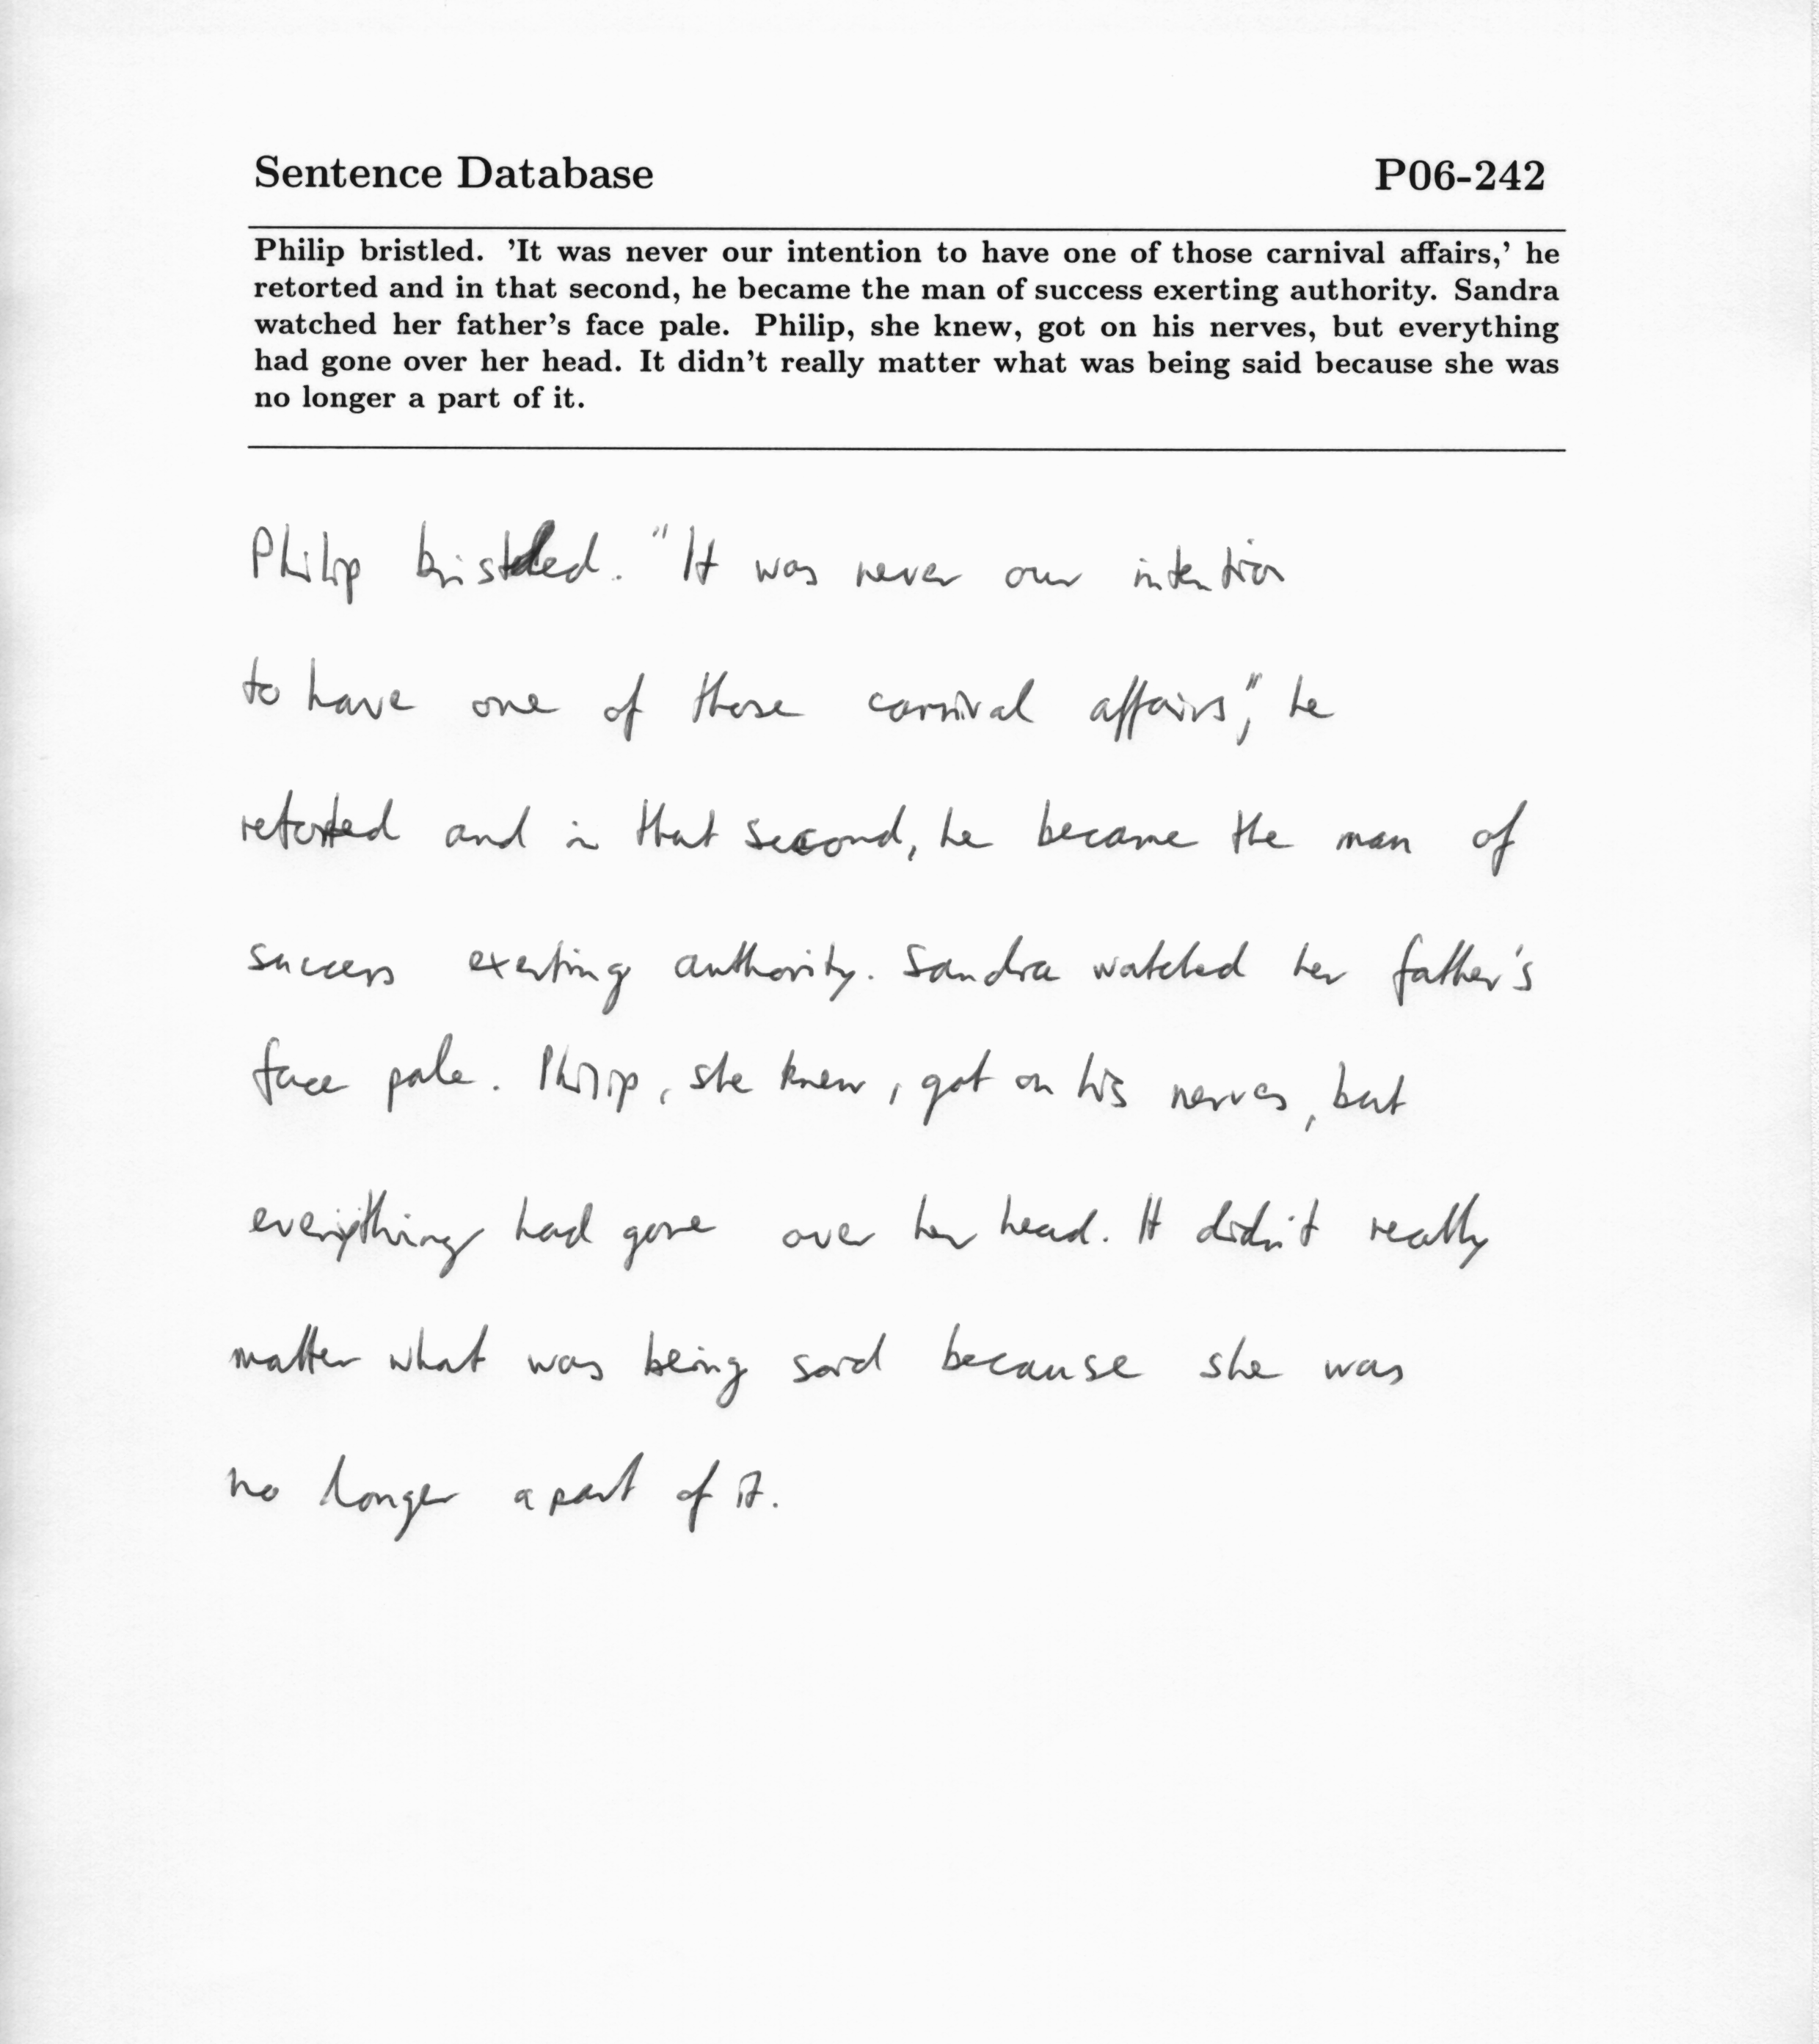 Sentence Database P06-242
Philip bristled. 'It was never our intention to have one of those carnival affairs,' he
retorted and in that second, he became the man of success exerting authority. Sandra
watched her father's face pale. Philip, she knew, got on his nerves, but everything
had gone over her head. It didn't really matter what was being said because she was
no longer a part of it.
Philip bristled. "It was never our intention
to have one of those carnival affairs," he
retorted and in that second, he became the man of
success exerting authority. Sandra watched her father's
face pale. Philip, she knew, got on his nerves, but
everything had gone over her head. It didn't really
matter what was being said because she was
no longer a part of it.